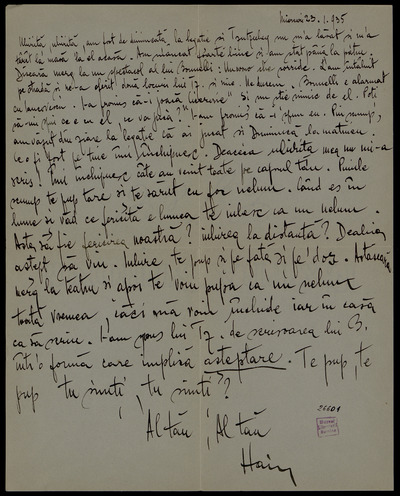 Miercuri 23.1.935
Iubită, iubită, am fost de dimineață la legație și Tzutzubey nu m'a lăsat și m'a
luat la masă la el acasă. Am mâncat foarte bine și am stat până la patru.
Diseară merg la un spectacol al lui Bonnelli: Un uomo che sorride. L-am întâlnit
pe stradă și ne-a oferit două locuri lui Tz. și mie. Ne ducem. Bonnelli e alarmat
cu American. I-a promis că-i joacă și nu știe nimic de el. Poți
să-mi spui ce e cu el, ce va face? I-am promis că-i spun eu. Pui scump,
am văzut din ziare la legație că ai jucat și Duminică la matineu.
Ce o fi fost pe tine îmi închipuesc. Deaceia iubirea mea nu mi-a
scris. Îmi închipuesc câte au venit toate pe capul tău. Puiule
scump te pup tare și te sărut cu foc nebun. Când es în
lume și văd ce fericită e lumea te iubesc ca un nebun.
Asta să fie fericirea noastră? iubirea la distanță? Dealtfel
aștept să vin. Iubire, te pup și pe față și pe doz. Astăseară
merg la teatru și apoi te voi pupa ca un nebun
toată vremea, căci mă voi închide iar în casă
ca să scriu. I-am spus lui Tz. de scrisoarea lui B.
într'o formă care implică așteptare. Te pup, te
pup tu simți, tu simți?
Al tău, Al tău
26601
Haig